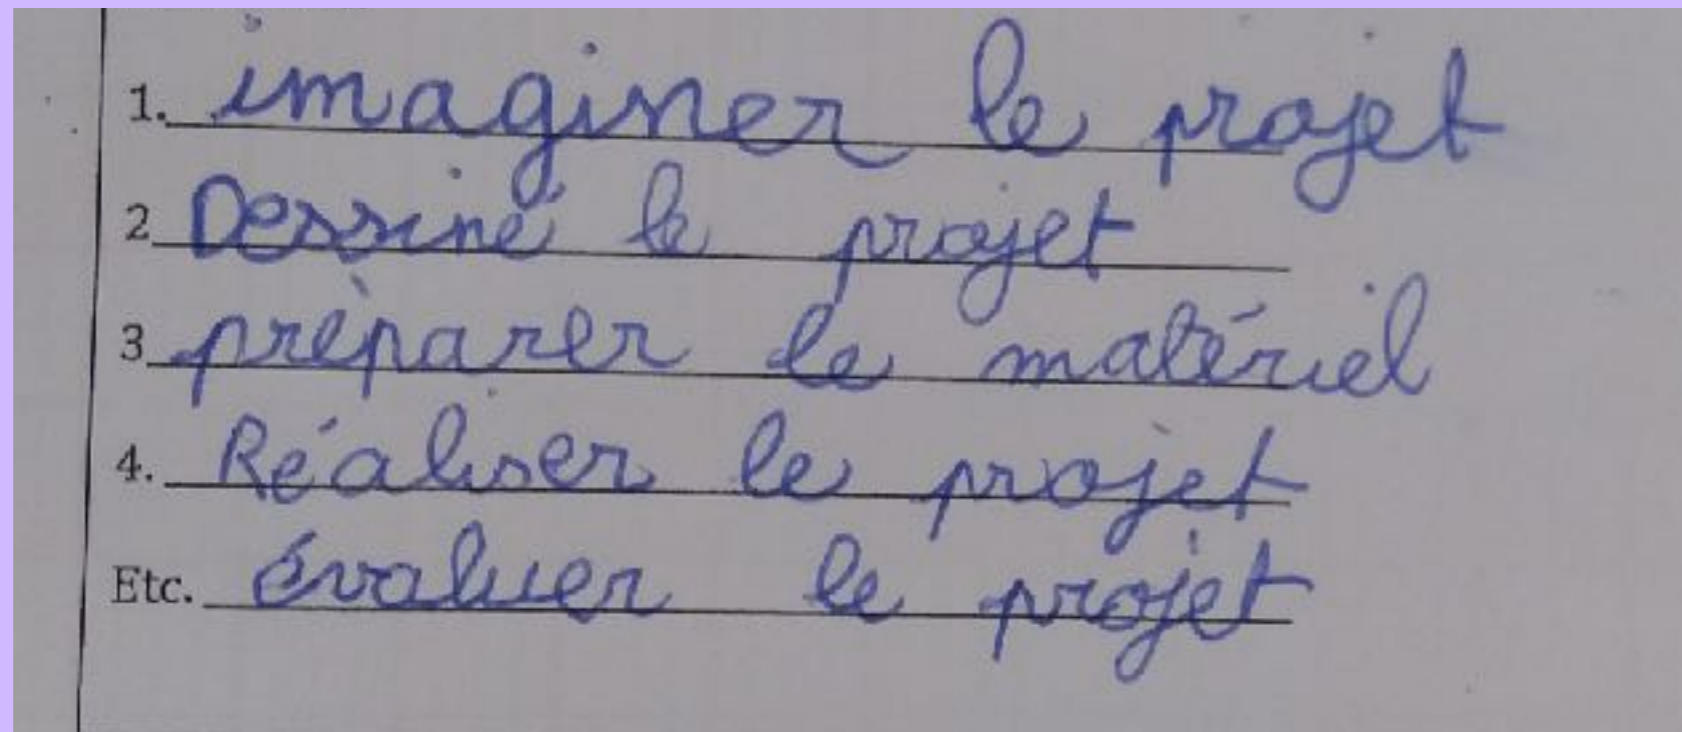 1. imaginer le projet
2 Dessiné le projet
3 prèparer le matériel
4. Réaliser le projet
Etc. évaluer le projet